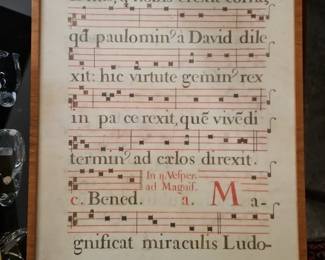 qd̄ paulomin⁹a David dile
xit: hic virtute gemin⁹rex
in pace rexit, quē vivēdi
termin⁹ad cælos direxit.
In 2. Vesper.
ad Magnif.
c. Bened. a. Ma-
gnificat miraculis Ludo-